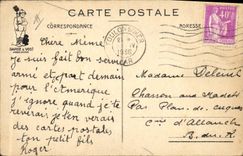 CARTE POSTALE
CORRESPONDANCE
ADRESSE
TOULON
VAR
40c
Chère Mémé
Je suis fait bon service
armé et part demain
pour l'Amérique
j'ignore quand je te
reverai je t'en verais
des cartes postales
ton petit fils
Roger
Madame
Chasson aux
Par Plan de Cuques
Cne d'Allauch
B. du R.